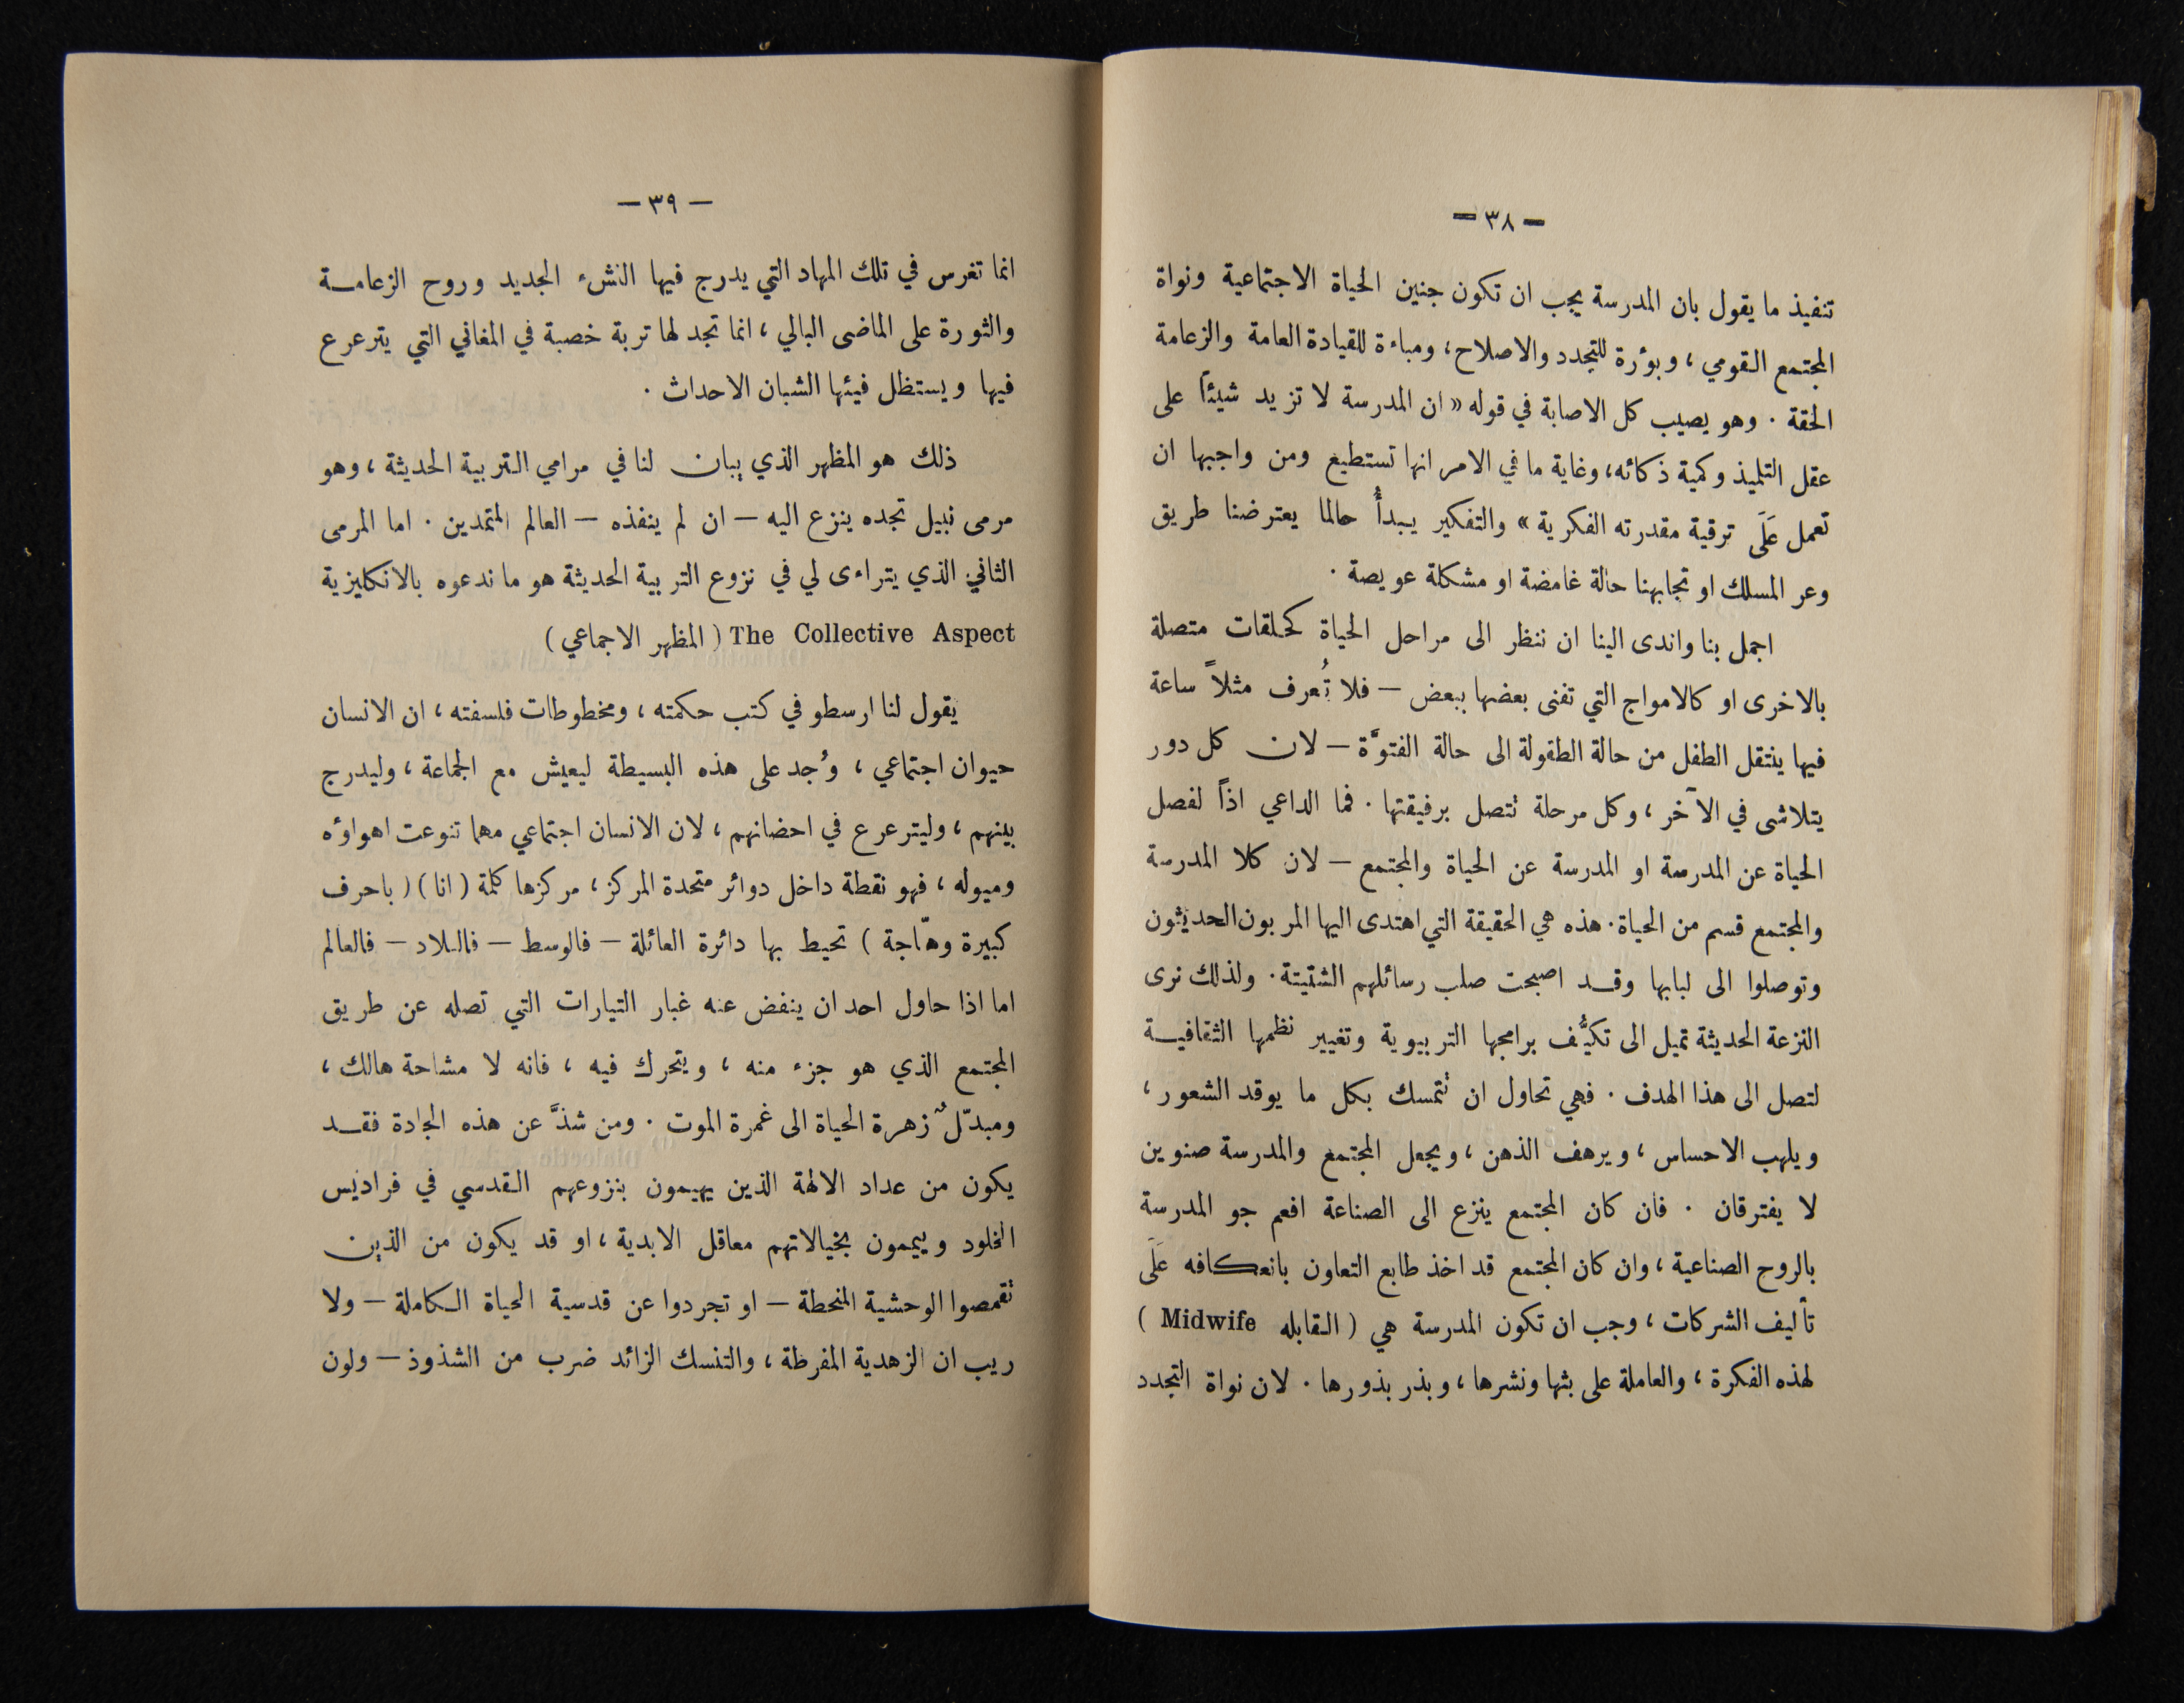 — ٣٨ —
تنفيذ ما يقول بان المدرسة يجب ان تكون جنين الحياة الاجتماعية ونواة
المجتمع القومي ، وبؤرة للتجدد والاصلاح ، ومباءة للقيادة العامة والزعامة
الحقة . وهو يصيب كل الاصابة في قوله « ان المدرسة لا تزيد شيئاً على
عقل التلميذ وكمية ذكائه ، وغاية ما في الامر انها تستطيع ومن واجبها ان
تعمل عَلَى ترقية مقدرته الفكرية » والتفكير يبدأُ حالما يعترضنا طريق
وعر المسلك او تجابهنا حالة غامضة او مشكلة عويصة .
اجمل بنا واندى الينا ان ننظر الى مراحل الحياة كحلقات متصلة
بالاخرى او كالامواج التي تفنى بعضها ببعض — فلا تُعرف مثلاً ساعة
فيها ينتقل الطفل من حالة الطفولة الى حالة الفتوَّة — لان كل دور
يتلاشى في الآخر ، وكل مرحلة تتصل برفيقتها . فما الداعي اذاً لفصل
الحياة عن المدرسة او المدرسة عن الحياة والمجتمع — لان كلا المدرسة
والمجتمع قسم من الحياة . هذه هي الحقيقة التي اهتدى اليها المربون الحديثون
وتوصلوا الى لبابها وقد اصبحت صلب رسائلهم الشتيتة . ولذلك نرى
النزعة الحديثة تميل الى تكيُّف برامجها التربيوية وتغيير نظمها الثقافية
لتصل الى هذا الهدف . فهي تحاول ان تتمسك بكل ما يوقد الشعور ،
ويلهب الاحساس ، ويرهف الذهن ، ويجعل المجتمع والمدرسة صنوين
لا يفترقان . فان كان المجتمع ينزع الى الصناعة افعم جو المدرسة
بالروح الصناعية ، وان كان المجتمع قد اخذ طابع التعاون بانعكافه عَلَى
تأليف الشركات ، وجب ان تكون المدرسة هي ( القابله Midwife )
لهذه الفكرة ، والعاملة على بثها ونشرها ، وبذر بذورها . لان نواة التجدد
— ٣٩ —
انما تغرس في تلك المهاد التي يدرج فيها النشء الجديد وروح الزعامة
والثورة على الماضى البالي ، انما تجد لها تربة خصبة في المغاني التي يترعرع
فيها ويستظل فيئها الشبان الاحداث .
ذلك هو المظهر الذي يبان لنا في مرامي التربية الحديثة ، وهو
مرمى نبيل تجده ينزع اليه — ان لم ينفذه — العالم المتمدين . اما المرمى
الثاني الذي يتراءى لي في نزوع التربية الحديثة هو ما ندعوه بالانكليزية
The Collective Aspect ( المظهر الاجماعي )
يقول لنا ارسطو في كتب حكمته ، ومخطوطات فلسفته ، ان الانسان
حيوان اجتماعي ، وُجد على هذه البسيطة ليعيش مع الجماعة ، وليدرج
بينهم ، وليترعرع في احضانهم ، لان الانسان اجتماعي مهما تنوعت اهواؤه
وميوله ، فهو نقطة داخل دوائر متحدة المركز ، مركزها كلمة ( انا ) ( باحرف
كبيرة وهّاجة ) تحيط بها دائرة العائلة — فالوسط — فالبلاد — فالعالم
اما اذا حاول احد ان ينفض عنه غبار التيارات التي تصله عن طريق
المجتمع الذي هو جزء منه ، ويتحرك فيه ، فانه لا مشاحة هالك ،
ومبدّلٌ زهرة الحياة الى غمرة الموت . ومن شذَّ عن هذه الجادة فقد
يكون من عداد الالهة الذين يهيمون بنزوعهم القدسي في فراديس
الخلود وييممون بخيالاتهم معاقل الابدية ، او قد يكون من الذين
تقمصوا الوحشية المنحطة — او تجردوا عن قدسية الحياة الكاملة — ولا
ريب ان الزهدية المفرطة ، والتنسك الزائد ضرب من الشذوذ — ولون